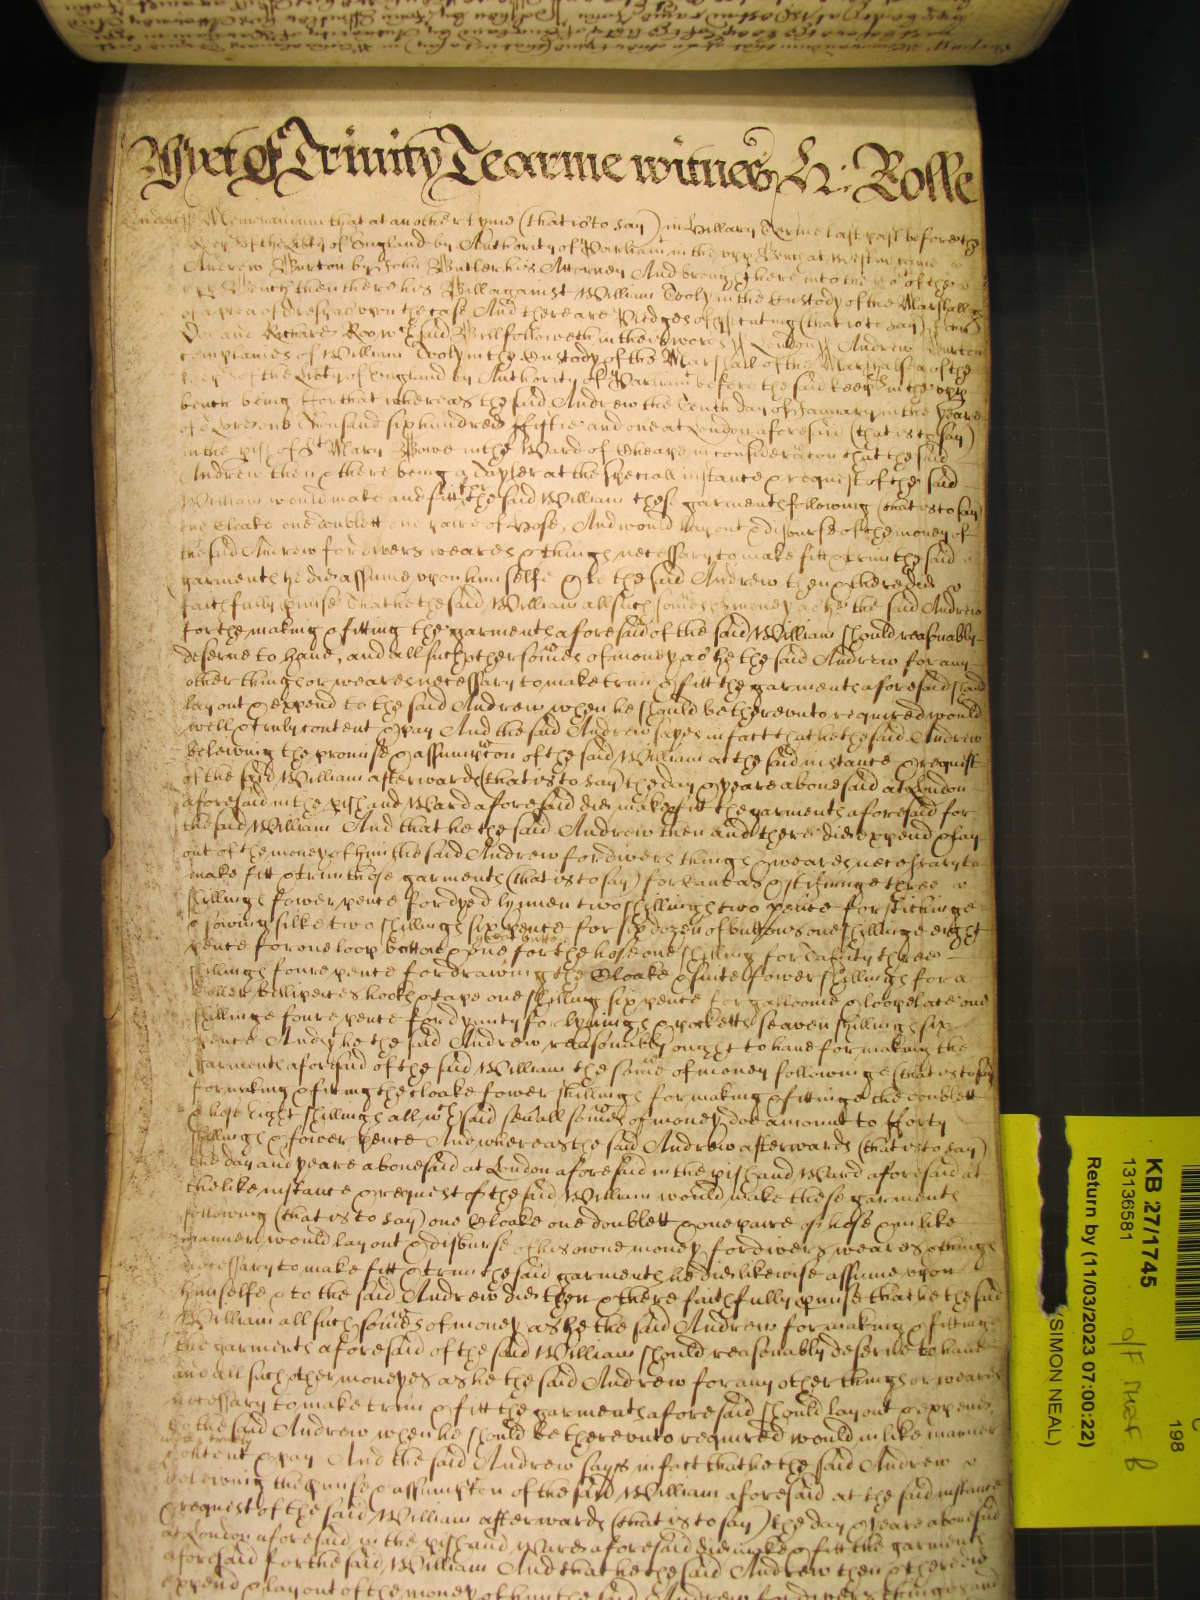 Yet of Trinity Tearme witnes H: Rolle
London ss Memorandum that at another tyme (that is to say) in Hillary Terme last past before the
keep's of the Lib'ty of England by Authority of Parliam't in the upp Bench at Westm' came
Andrew Burton by John Butler his Attorney And brought here into the Co't of the
upp Bench then there his Bill against William Tooly in the Custody of the Marshall &c
of a plea of Trespas upon the Case And there are Pledges of p'secuting (that is to say) John
Doe and Richard Roo w'ch said Bill followeth in theis words ss London ss Andrew Burton
complaines of William Tooly in the Custody of the Marshall of the Marshalsea of the
keep's of the Lib'ty of England by Authority of Parliam't before the said keep's in the upp
bench being for that whereas the said Andrew the Tenth day of January in the yeare
of o'r Lord one Thousand six hundred Fiftie and one at London aforesaid (that is to say)
in the p'ish of S't Mary Bowe in the Ward of Cheape in consideracon that the said
Andrew then & there being a Tayler at the speciall instance & request of the said
William would make and fitt for the said William these garments following (that is to say)
one Cloake one doublett one paire of Hose, And would lay out & disburse of the money of
the said Andrew for divers weares & things necessary to make fitt & trim the said
garments he did assume upon himselfe & to the said Andrew then & there did
faithfully p'mise That he the said William all such somes of money as he the said Andrew
for the making & fitting the garments aforesaid of the said William should reasonably
deserve to have, and all such other somes of money as he the said Andrew for any
other things or weares necessary to make trim & fitt the garments aforesaid should
lay out & expend to the said Andrew when he should be thereunto required would
well & truly content & pay And the said Andrew sayes in fact that he the said Andrew
beleiving the promise & assumpton of the said William at the said instance & request
of the said William afterwards (that is to say) the day & yeare abovesaid at London
aforesaid in the p'ish and Ward aforesaid did make & fitt the garments aforesaid for
the said William And that he the said Andrew then and there did expend & lay
out of the money of him the said Andrew for divers things & weares necessary to
make fitt & trim those garments (that is to say) for Canvas & stifninge three
shillings fower pence for dyed lynnen two shillings two pence for stichinge
& sowing silke two shillings six pence for six dozen of buttons one shillinge eight
pence for one loop button & one for the hose one shilling for Taffity three
shillings foure pence for drawing the Cloake & suite fower shillings for a
Coller bellipeices hooks & tape one shilling six pence for galloome & loopelace one
shillinge foure pence for dymity for lynings & pocketts seaven shillings six
pence And y't he the said Andrew reasonably ought to have for making the
garments aforesaid of the said William the some of money followinge (that is to say)
for making & fitting the cloake fower shillings for making & fittinge the doublett
& hose Eight shillings all w'ch said sev'all somes of money doe amount to Forty
shillings & fower pence And whereas the said Andrew afterwards (that is to say)
the day and yeare abovesaid at London aforesaid in the p'ish and Ward aforesaid at
the like instance & request of the said William would make these garments
following (that is to say) one Cloake one doublett & one paire of hose & in like
manner would lay out & disburse of his owne money for divers weares & things
necessary to make fitt & trim the said garments he did likewise assume upon
himselfe & to the said Andrew did then & there faithfully p'mise that he the said
William all such somes of money as he the said Andrew for making & fitting
the garments aforesaid of the said William should reasonably deserve to have
and all such other moneyes as he the said Andrew for any other things or weares
necessary to make trim & fitt the garments aforesaid should lay out & expend
to the said Andrew when he should be thereunto required would in like manner
content & pay And the said Andrew sayes in fact that he the said Andrew
beleiving the p'mise & assumpton of the said William aforesaid at the said instance
& request of the said William afterwards (that is to say) the day & yeare abovesaid
at London aforesaid in the p'ish and Ward aforesaid did make & fitt the garments
aforesaid for the said William And that he the said Andrew then & there did
expend & lay out of the money of him the said Andrew for divers things and
KB 27/1745
13136581
Return by (11/03/2023 07:00:22)
(SIMON NEAL)
198